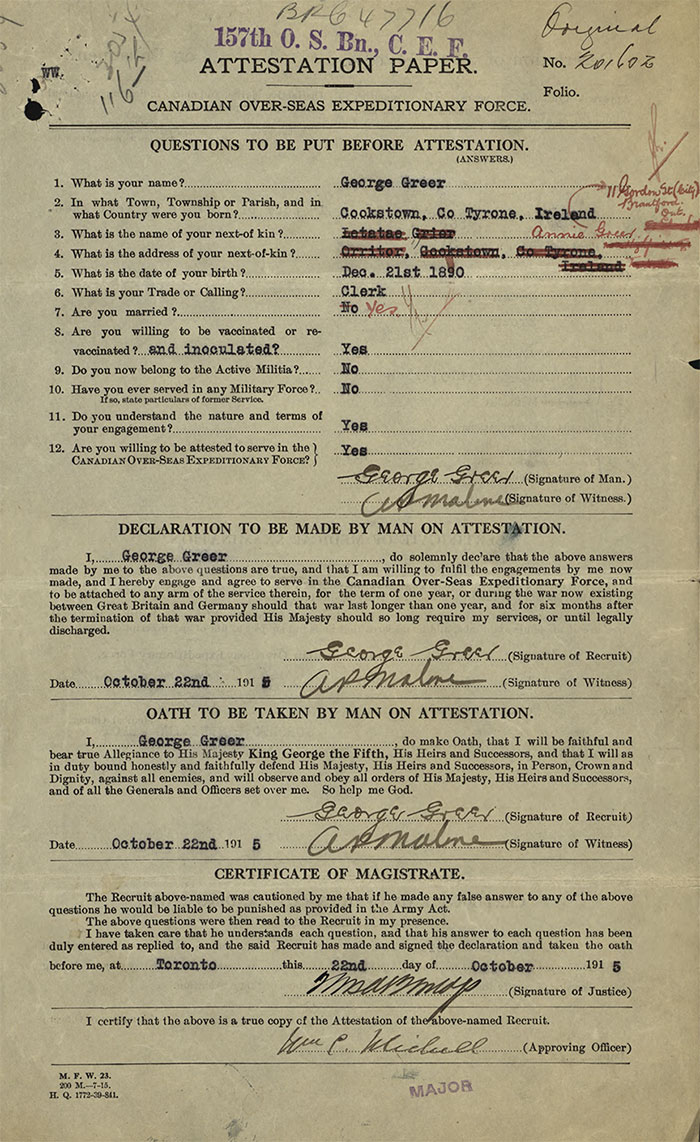 BRG 47716
Original
157th O. S. Bn., C. E. F.
ATTESTATION PAPER.
No. 201602
Folio.
CANADIAN OVER-SEAS EXPEDITIONARY FORCE.
QUESTIONS TO BE PUT BEFORE ATTESTATION.
(ANSWERS.)
1. What is your name? George Greer
11 Gordon St (City)
Brantford
Ont.
2. In what Town, Township or Parish, and in
what Country were you born? Cookstown, Co Tyrone, Ireland
3. What is the name of your next-of kin? Grier Annie Greer
4. What is the address of your next-of-kin? Orritor, Cookstown, Co Tyrone,
Ireland
5. What is the date of your birth? Dec. 21st 1890
6. What is your Trade or Calling? Clerk
7. Are you married? No Yes.
8. Are you willing to be vaccinated or re-
vaccinated? and inoculated? Yes
9. Do you now belong to the Active Militia? No
10. Have you ever served in any Military Force? No
If so, state particulars of former Service.
11. Do you understand the nature and terms of
your engagement? Yes
12. Are you willing to be attested to serve in the
CANADIAN OVER-SEAS EXPEDITIONARY FORCE? Yes
George Greer (Signature of Man.)
Malone (Signature of Witness.)
DECLARATION TO BE MADE BY MAN ON ATTESTATION.
I, George Greer, do solemnly declare that the above answers
made by me to the above questions are true, and that I am willing to fulfil the engagements by me now
made, and I hereby engage and agree to serve in the Canadian Over-Seas Expeditionary Force, and
to be attached to any arm of the service therein, for the term of one year, or during the war now existing
between Great Britain and Germany should that war last longer than one year, and for six months after
the termination of that war provided His Majesty should so long require my services, or until legally
discharged.
George Greer (Signature of Recruit)
Date October 22nd 1915 Malone (Signature of Witness)
OATH TO BE TAKEN BY MAN ON ATTESTATION.
I, George Greer, do make Oath, that I will be faithful and
bear true Allegiance to His Majesty King George the Fifth, His Heirs and Successors, and that I will as
in duty bound honestly and faithfully defend His Majesty, His Heirs and Successors, in Person, Crown and
Dignity, against all enemies, and will observe and obey all orders of His Majesty, His Heirs and Successors,
and of all the Generals and Officers set over me. So help me God.
George Greer (Signature of Recruit)
Date October 22nd 1915 Malone (Signature of Witness)
CERTIFICATE OF MAGISTRATE.
The Recruit above-named was cautioned by me that if he made any false answer to any of the above
questions he would be liable to be punished as provided in the Army Act.
The above questions were then read to the Recruit in my presence.
I have taken care that he understands each question, and that his answer to each question has been
duly entered as replied to, and the said Recruit has made and signed the declaration and taken the oath
before me, at Toronto this 22nd day of October 1915
(Signature of Justice)
I certify that the above is a true copy of the Attestation of the above-named Recruit.
Wm C. (Approving Officer)
M. F. W. 23.
200 M.—7-15.
H. Q. 1772-39-841.
MAJOR